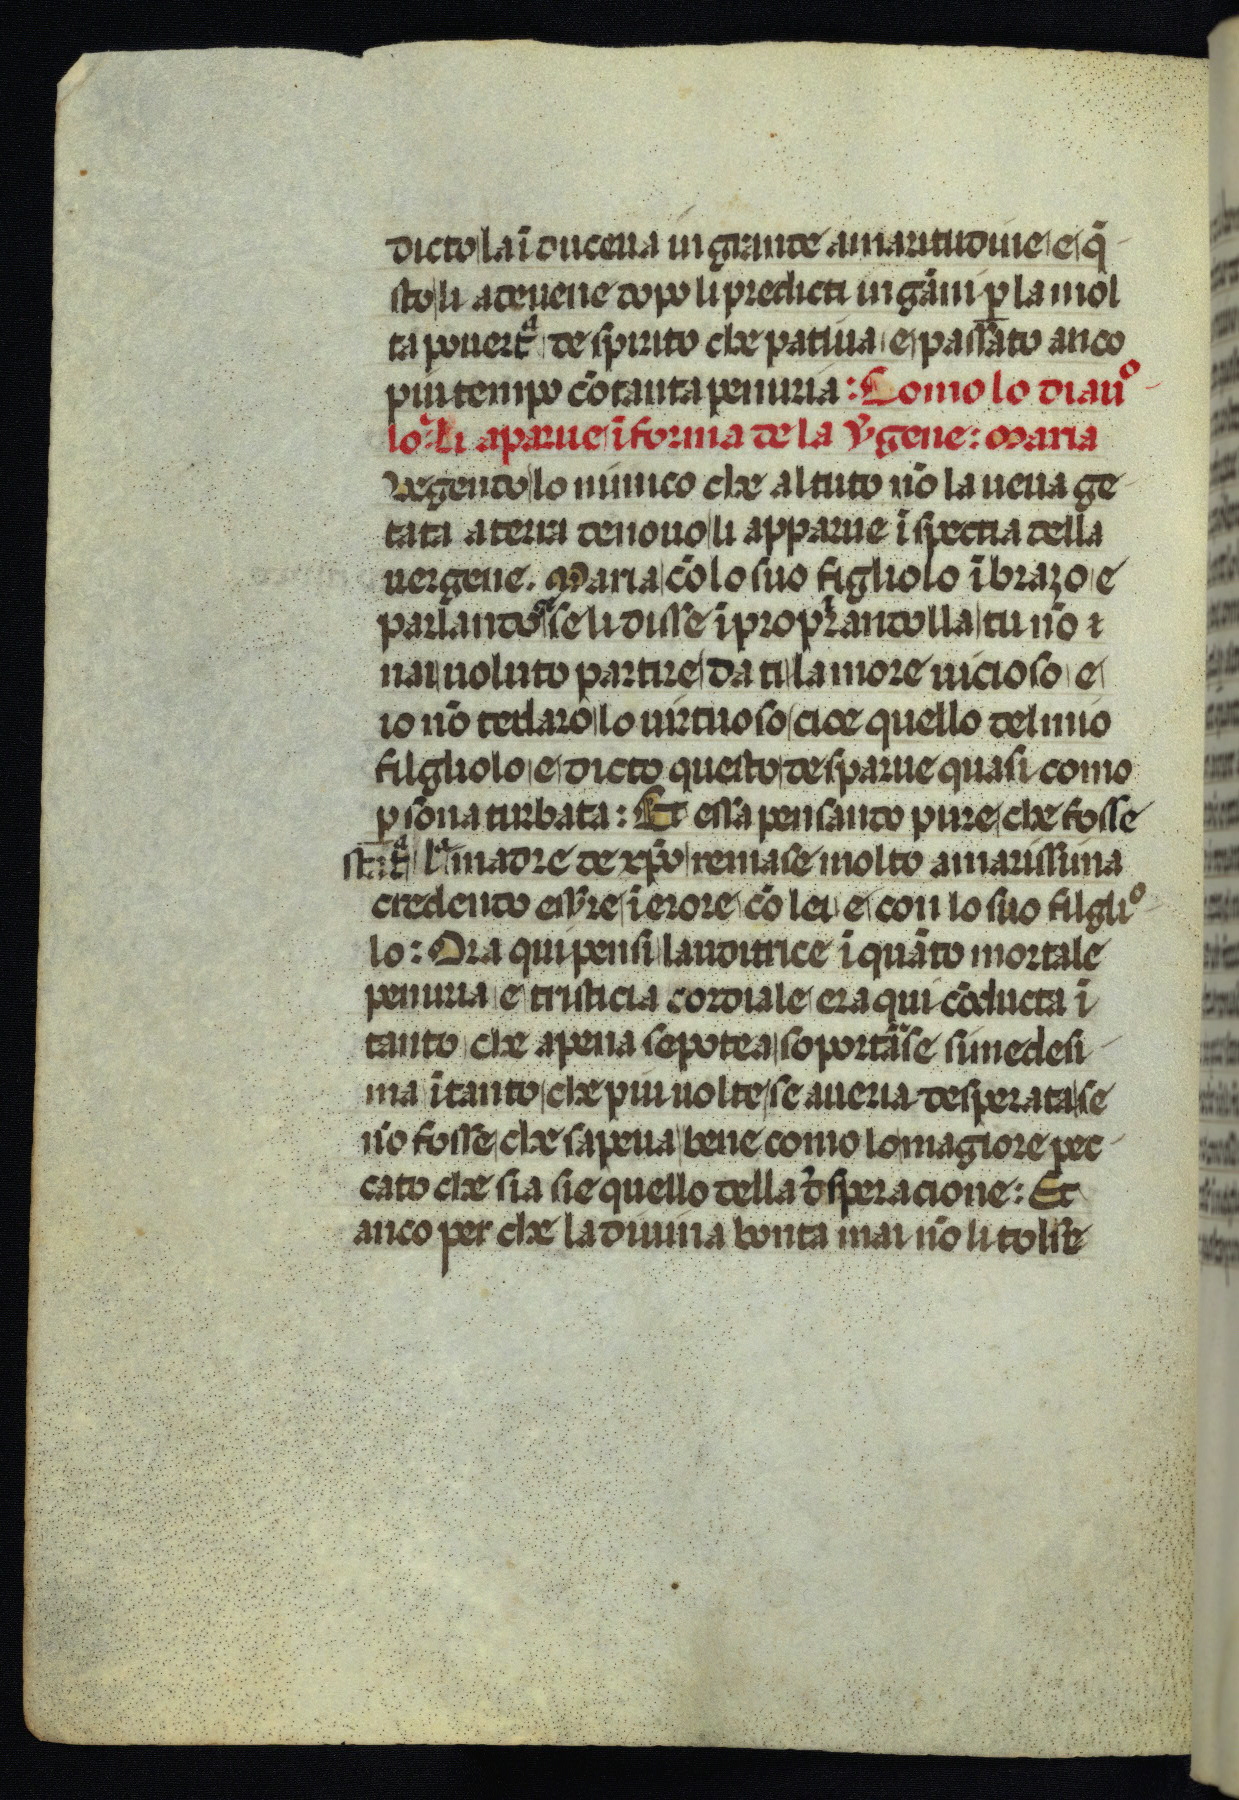 dicto la ī ducena in grande amaritudine e q̄
sto li adevene dopo li predicti ingāni ꝑ la mol
ta povertᵃ de spirito che pativa e passato anco
piu tempo cō tanta penuria : Como lo diauº
lo: li aparue ī forma de la Ṽgene: Maria
Uegendo lo nimico che al tuto nō la ueua ge
tata a terra de novo li apparue ī spectia della
uergene. Maria cō lo suo figliolo ī brazo e
parlando se li disse ī propꝛandolla tu nō
nai uoluto partire da ti lamore uicioso e
io nō te daro lo uirtuoso cioe quello del mio
filgliolo e dicto questo desparue quasi como
ꝑsona turbata : Et essa pensando pure che fosse
lᵃ madre de xp̄o remase molto amarissima
credendo essere ī erore cō lei e con lo suo filgliº
lo : Ora qui pensi lauditrice ī quāto mortale
penuria e tristicia cordiale era qui cōducta ī
tanto che apena se potea soportāse simedesi
ma ī tanto che piu uolte se aueria desperata se
nō fosse che sapeua bene como lo magiore pec
cato che sia sie quello della d̄speracione : Et
anco per che la diuina bonta mai nō li tolse